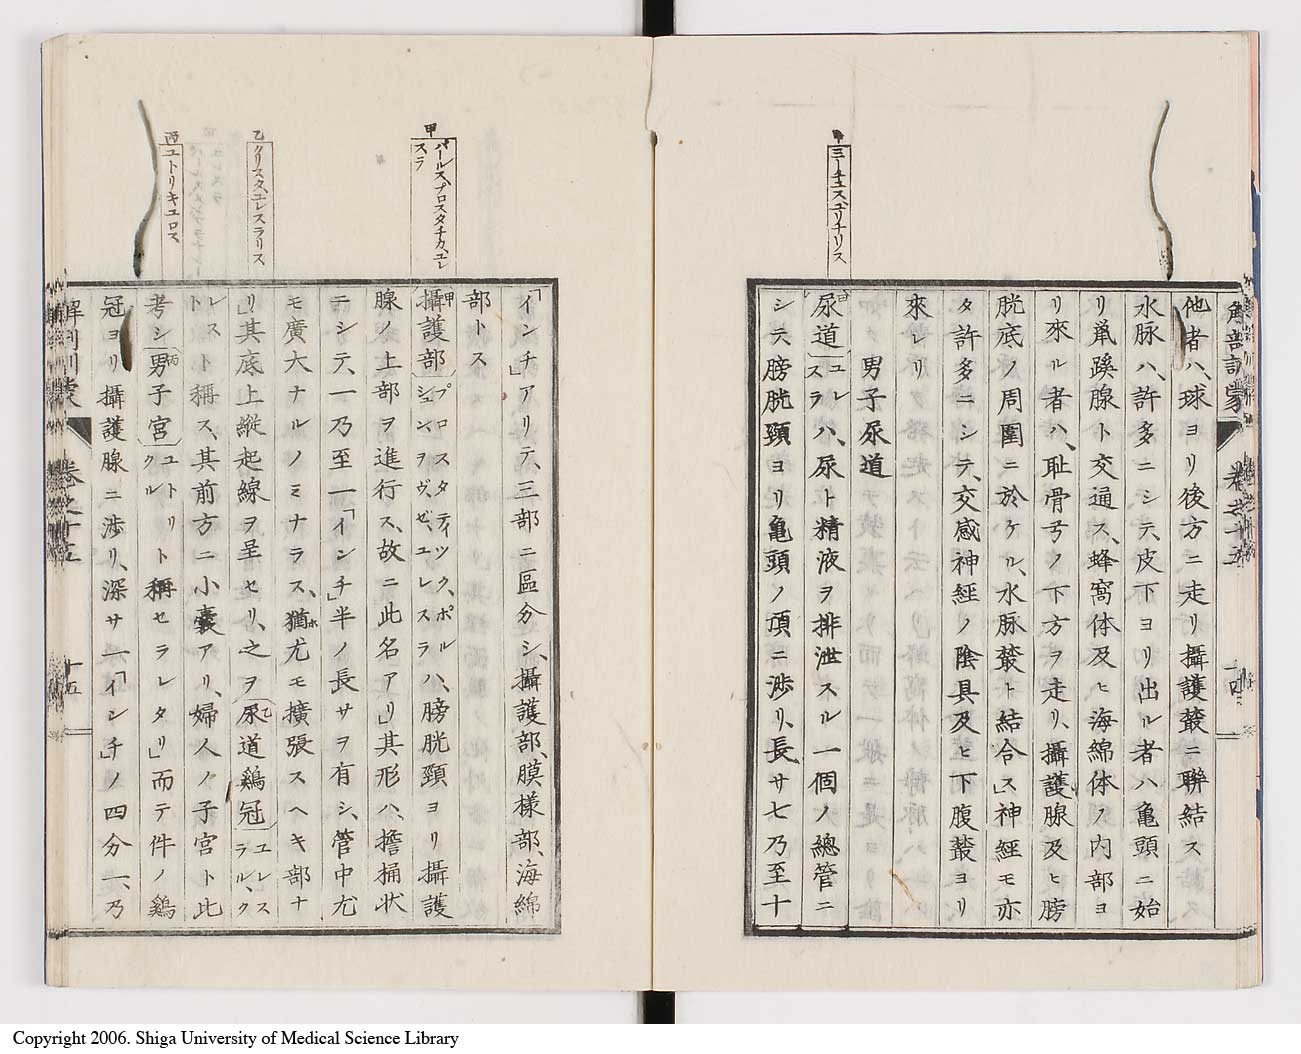 甲 ミーチュス、ユリナリス
他者ハ、球ヨリ後方ニ走リ攝護叢ニ聯結ス
水脉ハ、許多ニシテ、皮下ヨリ出ル者ハ亀頭ニ始
リ鼡蹊腺ト交通ス、蜂窩体及ヒ海綿体ノ内部ヨ
リ來ル者ハ、耻骨弓ノ下方ヲ走リ、攝護腺及ヒ膀
胱底ノ周圍ニ於ケル、水脉叢ト結合ス」神経モ亦
タ許多ニシテ、交感神経ノ陰具及ヒ下腹叢ヨリ
來レリ
男子尿道
尿道 ユレスラ ハ、尿ト精液ヲ排泄スル一個ノ總管ニ
シテ、膀胱頸ヨリ亀頭ノ頂ニ渉リ、長サ七乃至十
巻之十五
十四
甲 パールス、プロスタチカ、ユレ
スラ
乙 クリスタ、ユレスラリス
丙 ユトリキュロス
「インチ」アリテ、三部ニ區分シ、攝護部、膜樣部、海綿
部トス
甲 攝護部 プロスタティック、ポルシュン、ヲヴ、ゼ、ユレスラ ハ、膀胱頸ヨリ攝護
腺ノ上部ヲ進行ス、故ニ此名アリ」其形ハ、擔桶状
テシテ、一乃至一「インチ」半ノ長サヲ有シ、管中尤
モ廣大ナルノミナラス、猶ホ尤モ擴張スヘキ部ナ
リ」其底上縱起線ヲ呈セリ、之ヲ 乙 尿道鷄冠 ユレスラル、ク
レスト 稱ス、其前方ニ小囊アリ、婦人ノ子宮ト此
考シ 丙 男子宮 ユトリクル ト稱セラレタリ」而テ件ノ鷄
冠ヨリ攝護腺ニ渉リ、深サ一「インチ」ノ四分一、乃
解剖訓蒙
巻之十五
十五
Copyright 2006. Shiga University of Medical Science Library